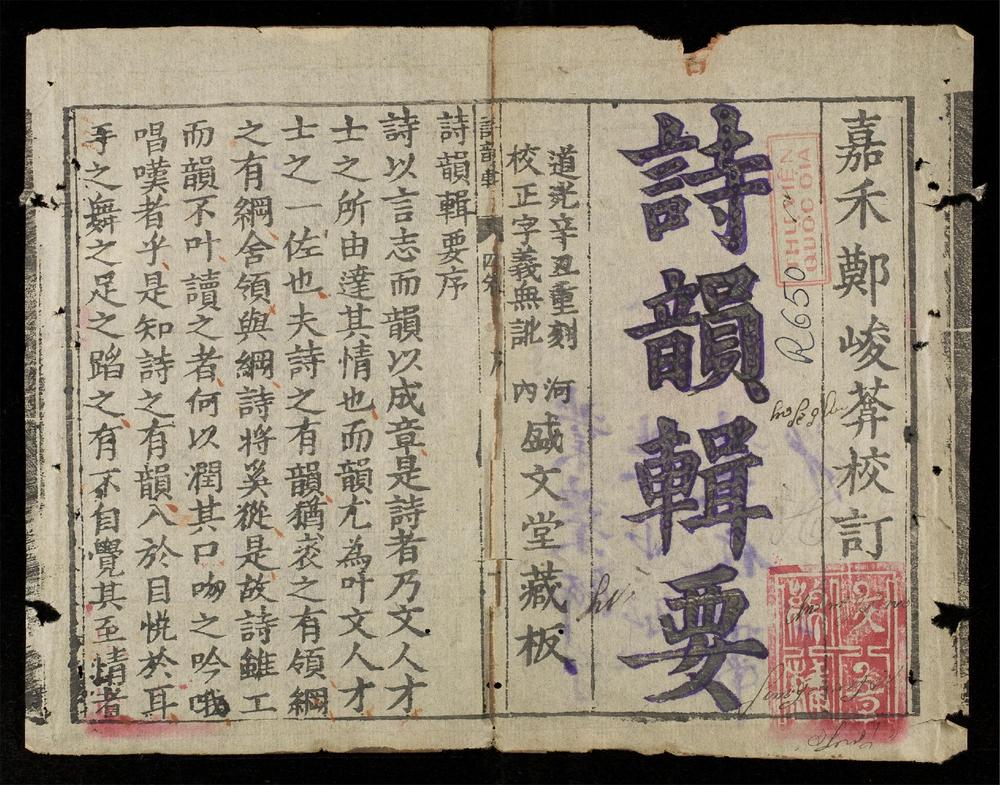 嘉禾鄭峻莾校訂
詩韻輯要
道光辛丑重刻
校正字義無訛
河內
盛文堂藏板
THƯ VIỆN
QUỐC GIA
R650
詩韻輯
序
詩韻輯要序
詩以言志而韻以成章是詩者乃文人才
士之所由達其情也而韻尤為叶文人才
士之一佐也夫詩之有韻猶衣之有領綱
之有綱舍領與綱詩將奚從是故詩雖工
而韻不叶讀之者何以潤其口吻之吟哦
唱嘆者乎是知詩之有韻入於目恍於耳
手之舞之足之蹈之有不自覺其至情者